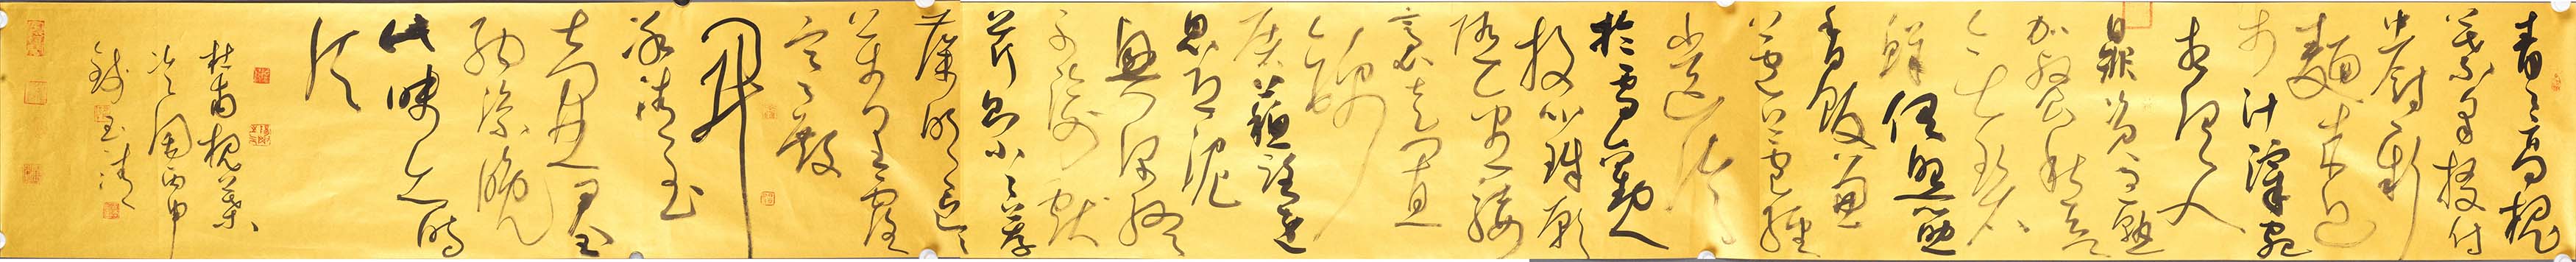 青青高槐
葉采掇付
中廚新
麵來近
市汁滓宛
相俱入
鼎資過熟
加餐愁欲
無碧
鮮俱照箸
香飯兼
苞蘆經
齒冷
於雪勸人
投此珠願
隨金騕
褭走置
錦
屠蘇路遠
思恐泥
興深終
不渝獻
芹則小小薦
藻明區區
萬里露
寒殿
開
冰清玉
壺君王
納涼晚
此味亦時
須
杜甫槐葉
冷淘丙申
錢玉清